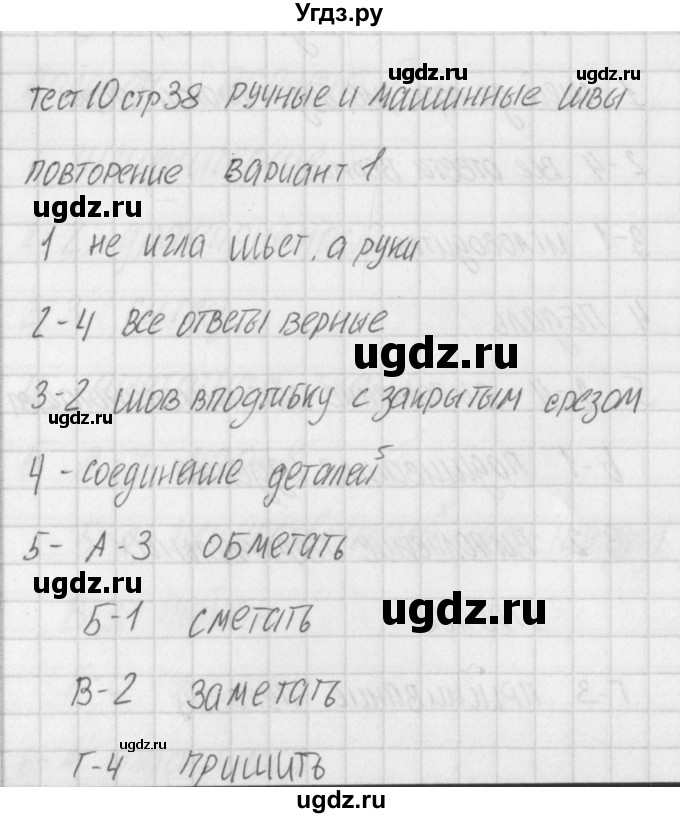 Угдз.ру
ugdz.ru ugdz.ru
тест 10 стр 38 ручные и машинные швы
повторение вариант 1
ugdz.ru
1 не игла шьет, а руки
2-4 все ответы верные
ugdz.ru
3-2 шов вподгибку с закрытым срезом
4 - соединение деталей
5- А-3 обметать
ugdz.ru
ugdz.ru
Б-1 сметать
В-2 заметать
ugdz.ru
Г-4 пришить
ugdz.ru